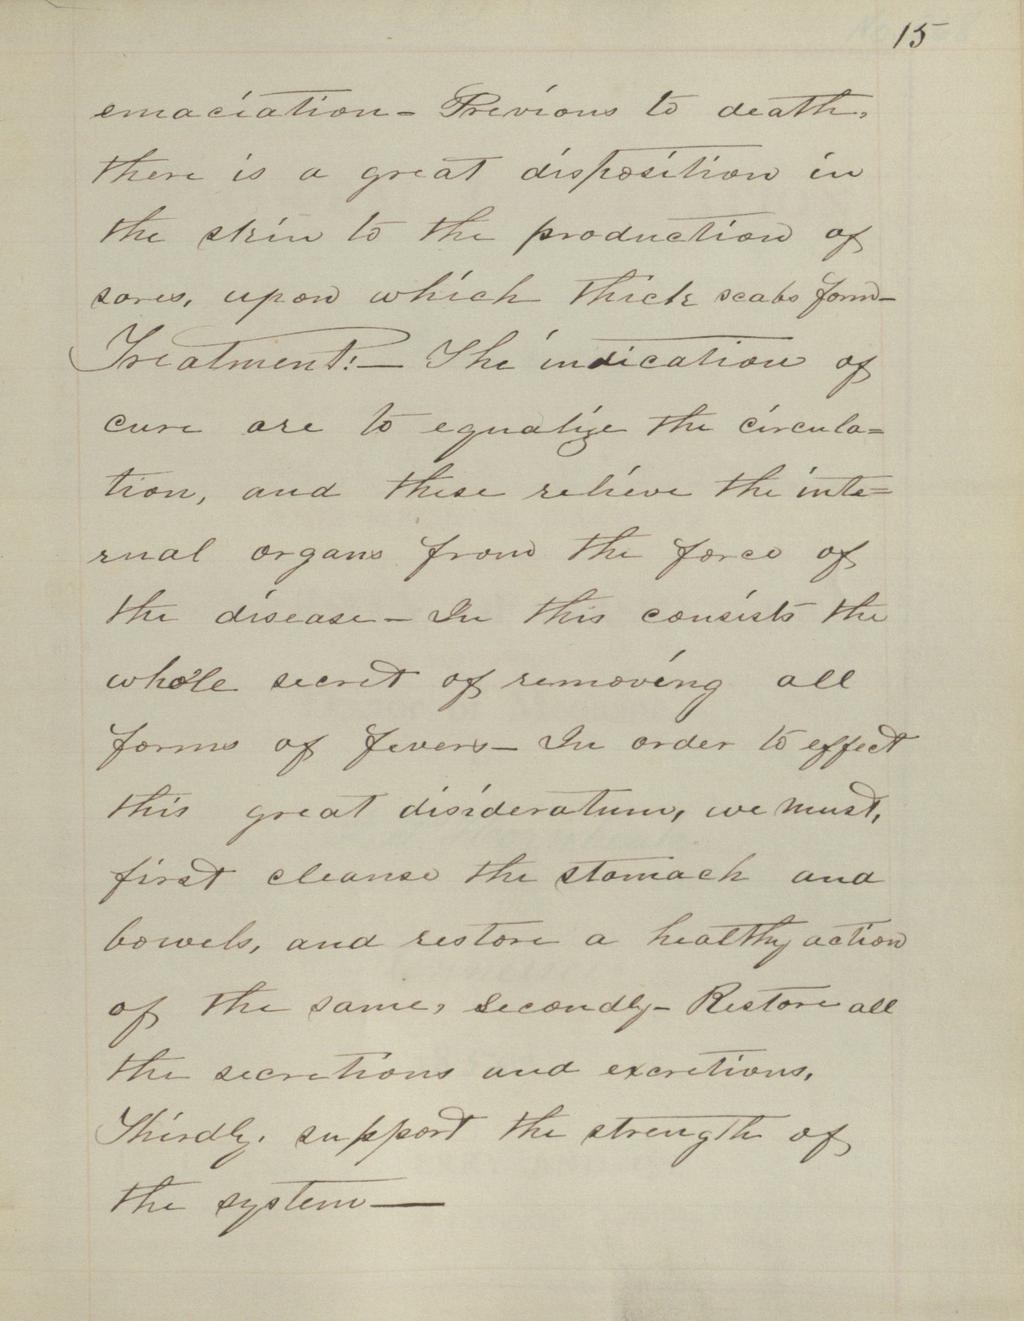 15
emaciation - Previous to death,
there is a great disposition in
the skin to the production of
sores, upon which thick scabs form -
Treatment: - The indication of
cure are to equalize the circula=
tion, and these relieve the inte=
rnal organs from the force of
the disease - In this consists the
whole secret of removing all
forms of fevers - In order to effect
this great disideratum, we must,
first cleanse the stomach and
bowels, and restore a healthy action
of the same, Secondly - Restore all
the secretions and excretions,
Thirdly, support the strength of
the system -